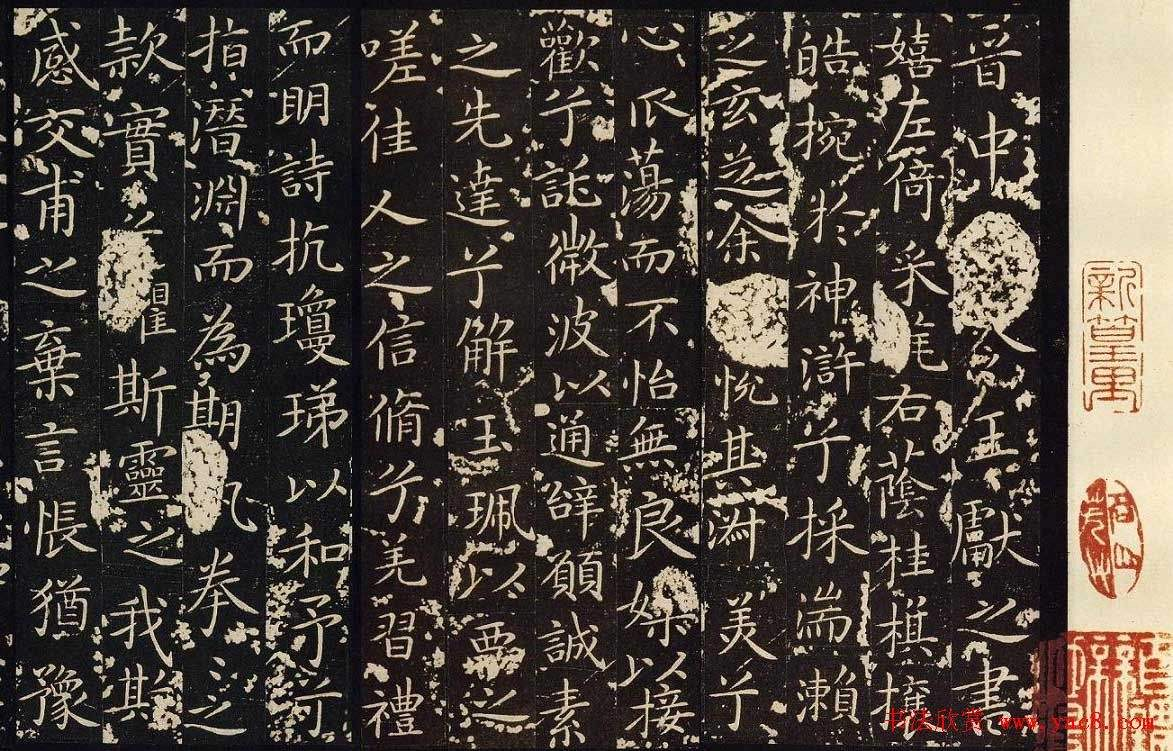 晋中令王獻之書
嬉左倚采旄右蔭桂旗攘
皓捥於神滸兮採湍瀨
之玄芝余悅其淑美兮
心振蕩而不怡無良媒以接
歡兮託微波以通辭願誠素
之先達兮解玉珮以要之
嗟佳人之信脩兮羌習禮
而明詩抗瓊珶以和予兮
指潛淵而為期執拳之
款實兮懼斯靈之我欺
感交甫之棄言悵猶豫
书法欣赏 www.yac8.com